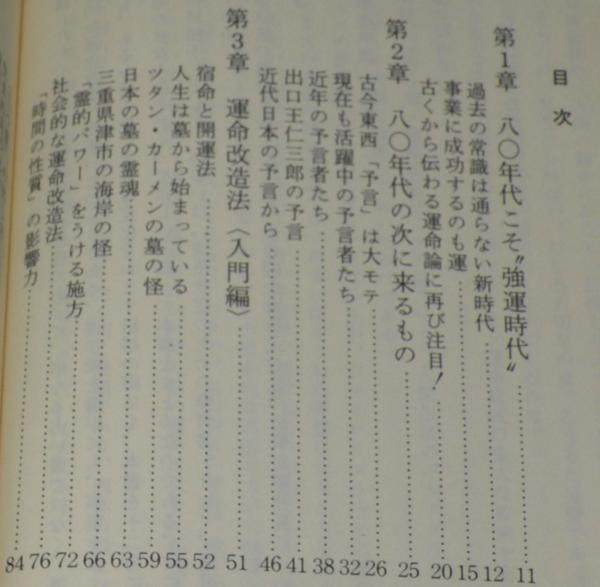 目次
第1章 八〇年代こそ〝強運時代〟 11
過去の常識は通らない新時代 12
事業に成功するのも運 15
古くから伝わる運命論に再び注目! 20
第2章 八〇年代の次に来るもの 25
古今東西「予言」は大モテ 26
現在も活躍中の予言者たち 32
近年の予言者たち 38
出口王仁三郎の予言 41
近代日本の予言から 46
第3章 運命改造法〈入門編〉 51
宿命と開運法 52
人生は墓から始まっている 55
ツタン・カーメンの墓の怪 59
日本の墓の霊魂 63
三重県津市の海岸の怪 66
「霊的パワー」をうける施方 72
社会的な運命改造法 76
「時間の性質」の影響力 84